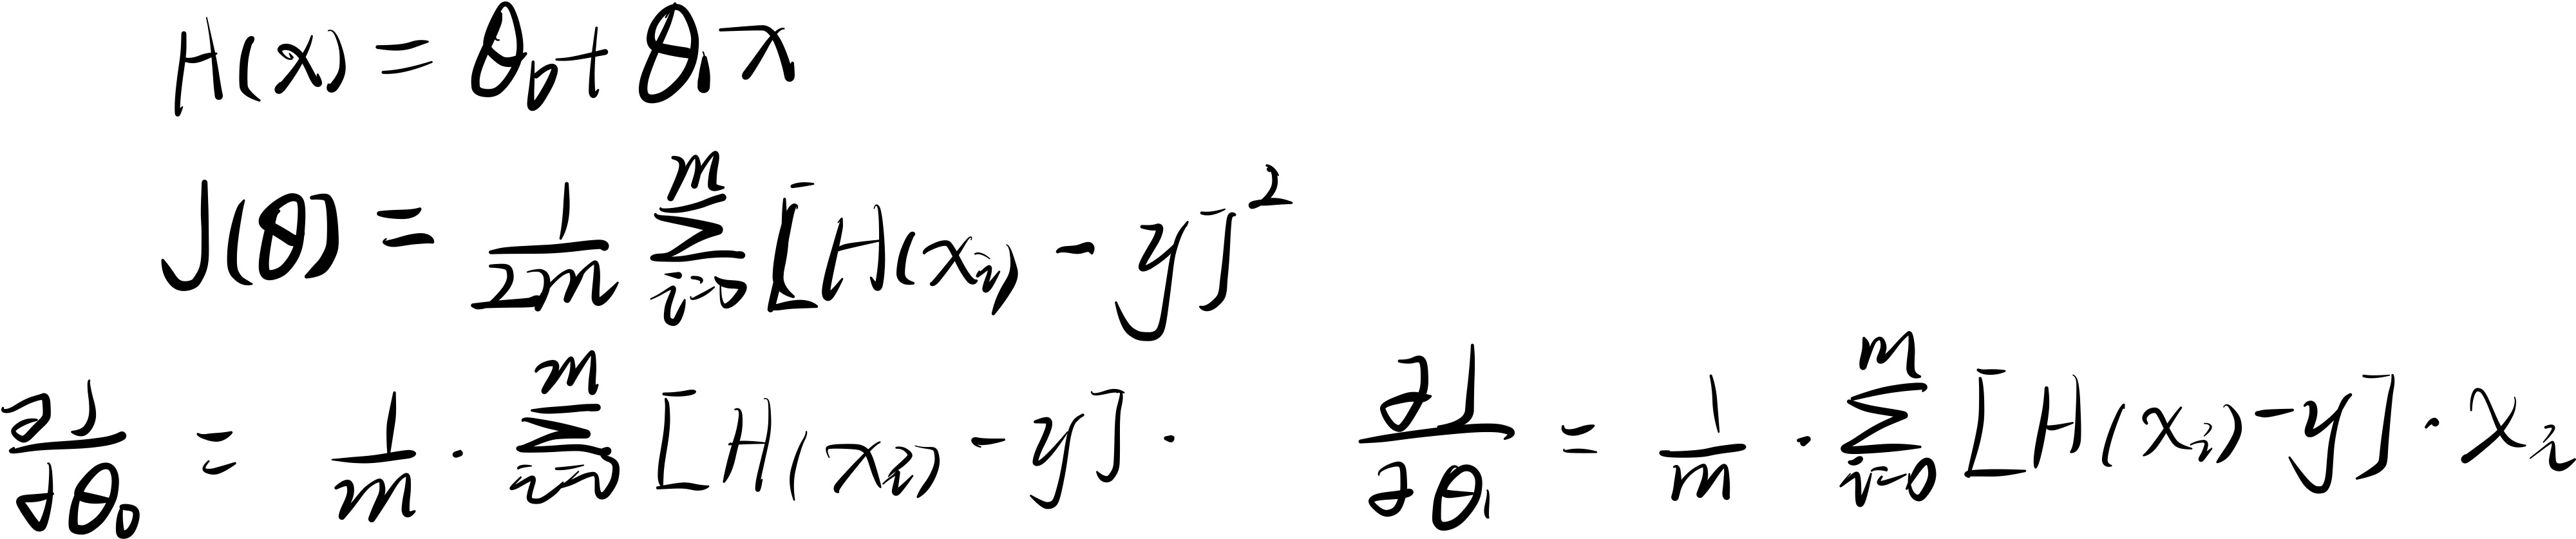 H(x) = θ₀ + θ₁x
J(θ) = \frac{1}{2m} \sum_{i=0}^{m} [H(x_i) - y]^2
\frac{∂J}{∂θ_0} = \frac{1}{m} · \sum_{i=0}^{m} [H(x_i) - y] ·    \frac{∂J}{∂θ_1} = \frac{1}{m} · \sum_{i=0}^{m} [H(x_i) - y] · x_i